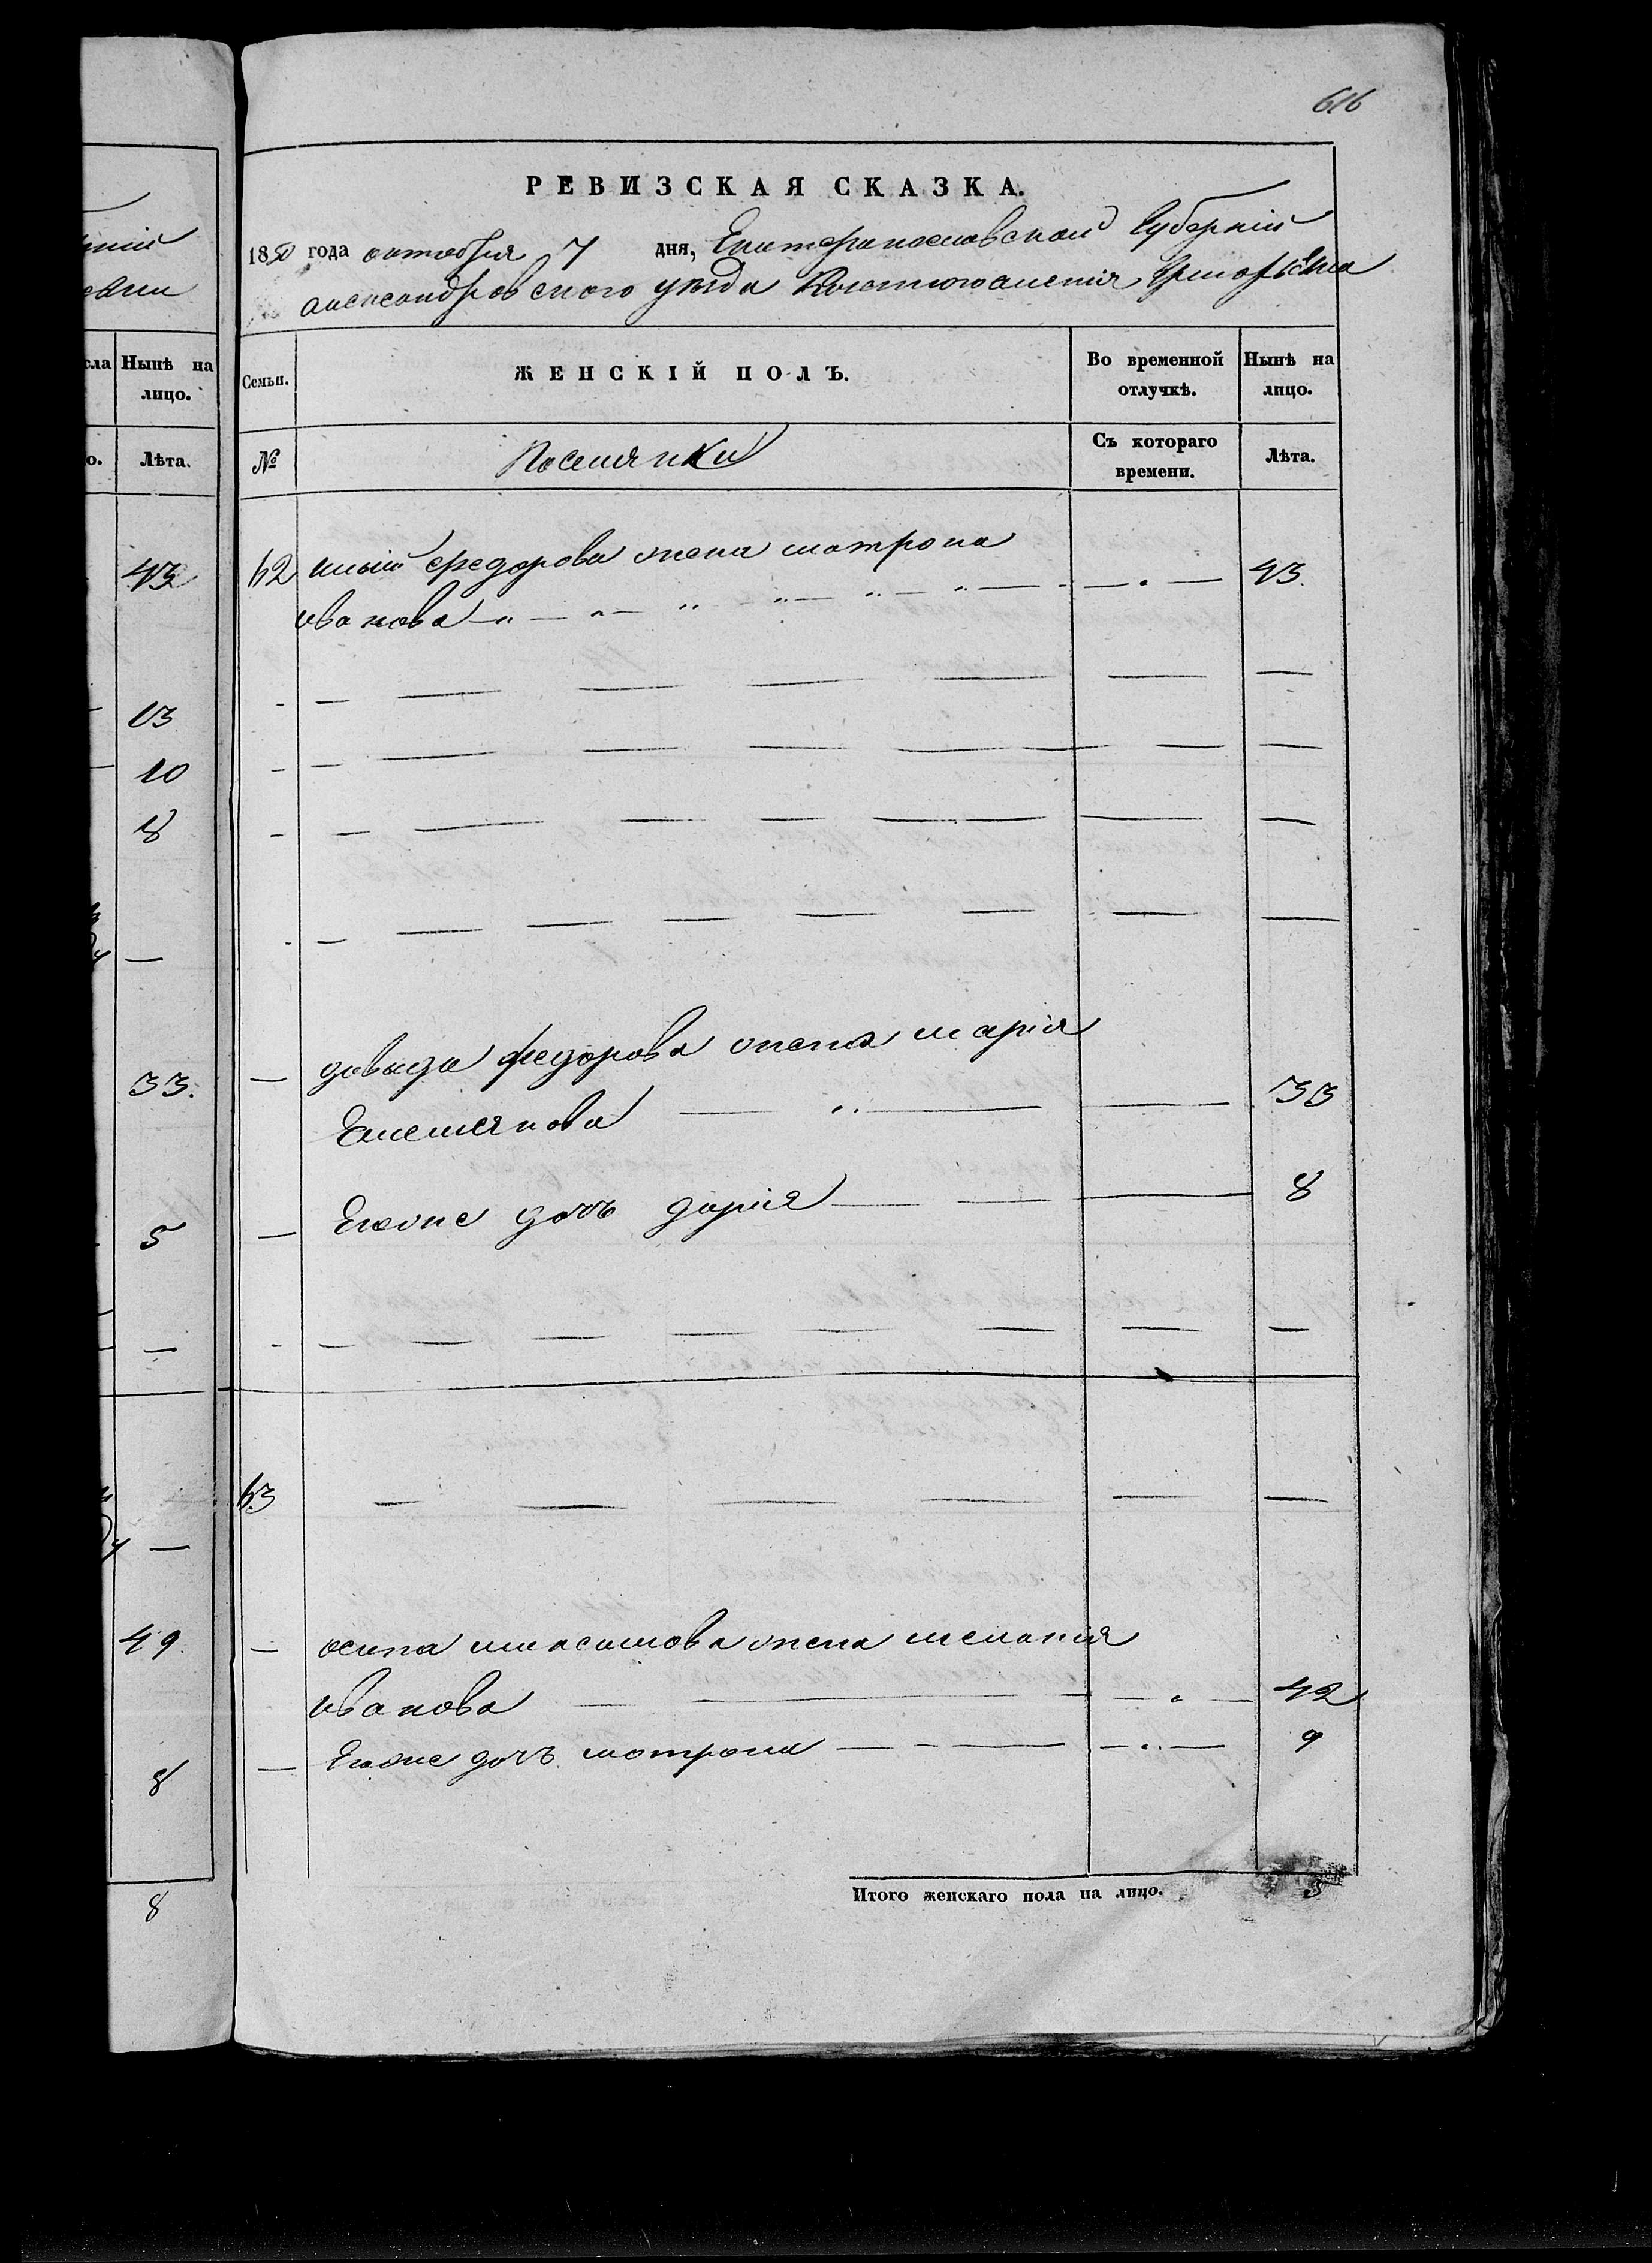 616
ній
Нынѣ на лицо.
Лѣта.
43
13
10
8
—
33.
5
—
—
49.
8
8
РЕВИЗСКАЯ СКАЗКА.
1850 года октября 7 дня, Екатеринославской Губерніи
александровского уѣзда
Семьи.
ЖЕНСКІЙ ПОЛЪ.
Во временной отлучкѣ.
Нынѣ на лицо.
№
Поселянки
Съ котораго времени.
Лѣта.
62 федорова жена матрона
иванова 43.
давыда федорова жена марія
Емельянова 33
Егоже дочь дарія 8
63
осипа максимова жена меланія
иванова 42
Егоже дочь матрона 9
Итого женскаго пола на лицо. 5